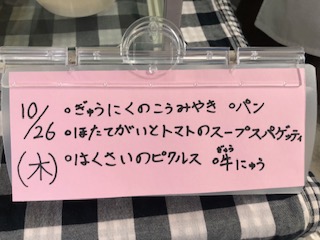 10/26 ○ぎゅうにくのこうみやき ○パン
○ほたてがいとトマトのスープスパゲッティ
(木) ○はくさいのピクルス ○牛にゅう
ぎゅう